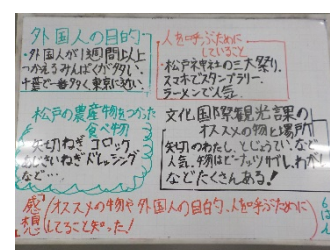 外国人の目的
・外国人が1週間以上
つかえるみんぱくが多い。
千葉で一番多く、東京に近い。
人を呼ぶために
していること
・松戸神社の三大祭り。
スマホでスタンプラリー。
ラーメンで人気。
松戸の農産物をつかった
食べ物
矢切ねぎ コロッケ
ねぎ ドレッシング
など…
文化国際観光課の
オススメの物と場所
矢切のわたし、とじょうてい、など
人気。物はピーナッツサブレ、
などたくさんある!
感想
オススメの物や外国人の目的、人を呼ぶために
してること知った!
6
はん